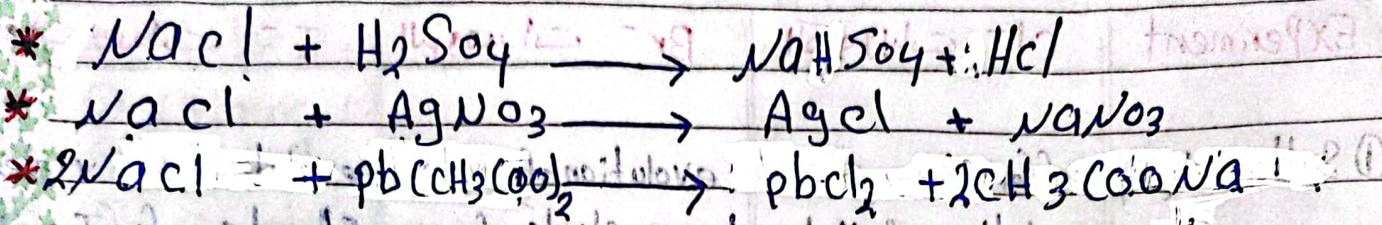 * NaCl + H2SO4 ⟶ NaHSO4 + HCl
* NaCl + AgNO3 ⟶ AgCl + NaNO3
* 2NaCl + pb(CH3COO)2 ⟶ pbCl2 + 2CH3COONa